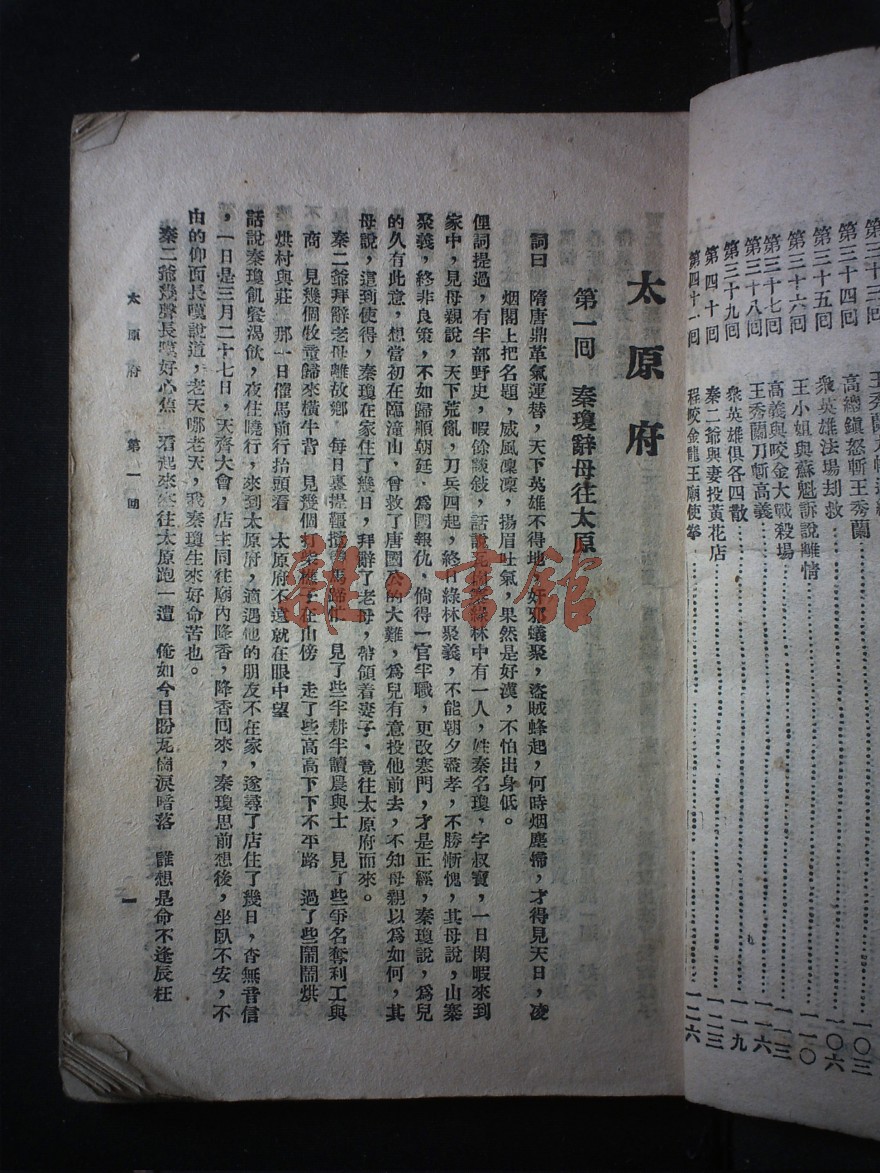 第三十三回 王秀蘭大 一〇三
第三十四回 高總鎮怒斬王秀蘭 一〇六
第三十五回 衆英雄法場刦救 一一〇
第三十六回 王小姐與蘇魁訴說離情 一一三
第三十七回 高義與咬金大戰殺場 一一六
第三十八回 王秀蘭刀斬高義 一一九
第三十九回 衆英雄俱各四散 一二三
第四十回 秦二爺與妻投黃花店 一二六
第四十一回 程咬金龍王廟使拳
太原府
第一囘 秦瓊辭母往太原
詞曰 隋唐鼎革氣運替，天下英雄不得地，奸邪蟻聚，盜賊蜂起，何時烟塵掃，才得見天日，凌
烟閣上把名題，威風凜凜，揚眉吐氣，果然是好漢，不怕出身低。
俚詞提過，有半部野史，暇餘談敍，話說 綠林中有一人，姓秦名瓊，字叔寶，一日閑暇來到
家中，見母親說，天下荒亂，刀兵四起，終日綠林聚義，不能朝夕盡孝，不勝慚愧，其母說，山寨
聚義，終非良策，不如歸順朝廷，爲國報仇，倘得一官半職，更改寒門，才是正經，秦瓊說，爲兒
的久有此意，想當初在臨潼山，曾救了唐國公的大難，爲兒有意投他前去，不知母親以爲如何，其
母說，這到使得，秦瓊在家住了幾日，拜辭了老母，帶領着妻子，竟往太原府而來。
秦二爺拜辭老母離故鄉 每日裏提韁 馬 見了些半耕半讀農與士 見了些爭名奪利工與
商 見幾個牧童歸來橫牛背 見幾個打柴樵子在山傍 走了些高高下下不平路 過了些鬧鬧烘
烘村與莊 那一日催馬前行抬頭看 太原府不遠就在眼中望
話說秦瓊飢餐渴飲，夜住曉行，來到太原府，適遇他的朋友不在家，遂尋了店住了幾日，杳無音信
，一日是三月二十七日，天齊大會，店主同往廟內降香，降香回來，秦瓊思前想後，坐臥不安，不
由的仰面長嘆說道，老天哪老天，我秦瓊生來好命苦也。
秦二爺幾聲長嘆好心焦 看起來 往太原跑一遭 俺如今目盼 淚暗落 誰想是命不逢辰枉
太原府 第一囘 一
雜·書館